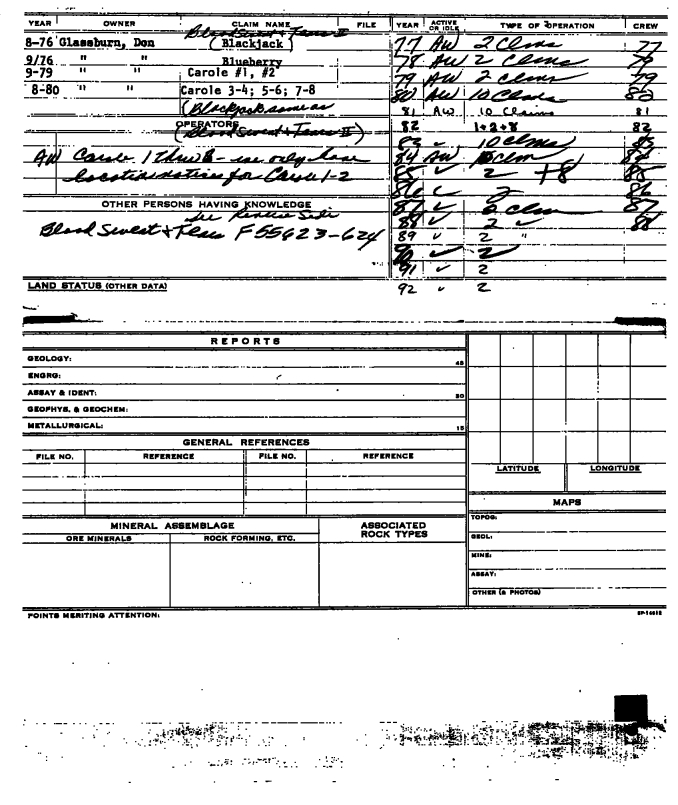 Blood Sweat + Tears II
YEAR OWNER CLAIM NAME FILE YEAR ACTIVE OR IDLE TYPE OF OPERATION CREW
8-76 Glassburn, Don (Blackjack) 77 AW 2 Clms 77
9/76 " " Blueberry 78 AW 2 Clms 79
9-79 " " Carole #1, #2 79 AW 2 clms 79
8-80 " " Carole 3-4; 5-6; 7-8 80 AW 10 Clms 80
(Blackjack same as 81 AW 10 Claims 81
OPERATORS 82 1+2+8 82
(Blood Sweat + Tears II) 83 ✓ 10 Clms 83
AW Carole 1 thru 8 - we only have 84 AW 10 Clm 84
location notices for Carole 1-2 85 ✓ 2 +8 85
86 ✓ 2 86
OTHER PERSONS HAVING KNOWLEDGE 87 ✓ 2 clm 87
See Reverse Side 88 ✓ 2 ✓ 88
Blood Sweat + Tears F 55623-624 89 ✓ 2 "
90 ✓ 2
91 ✓ 2
LAND STATUS (OTHER DATA) 92 ✓ 2
REPORTS
GEOLOGY: 45
ENGRG:
ASSAY & IDENT: 30
GEOPHYS. & GEOCHEM:
METALLURGICAL: 15
GENERAL REFERENCES
FILE NO. REFERENCE FILE NO. REFERENCE LATITUDE LONGITUDE
MAPS
MINERAL ASSEMBLAGE ASSOCIATED ROCK TYPES TOPOG:
ORE MINERALS ROCK FORMING, ETC. GEOL:
MINE:
ASSAY:
OTHER (& PHOTOS)
POINTS MERITING ATTENTION: